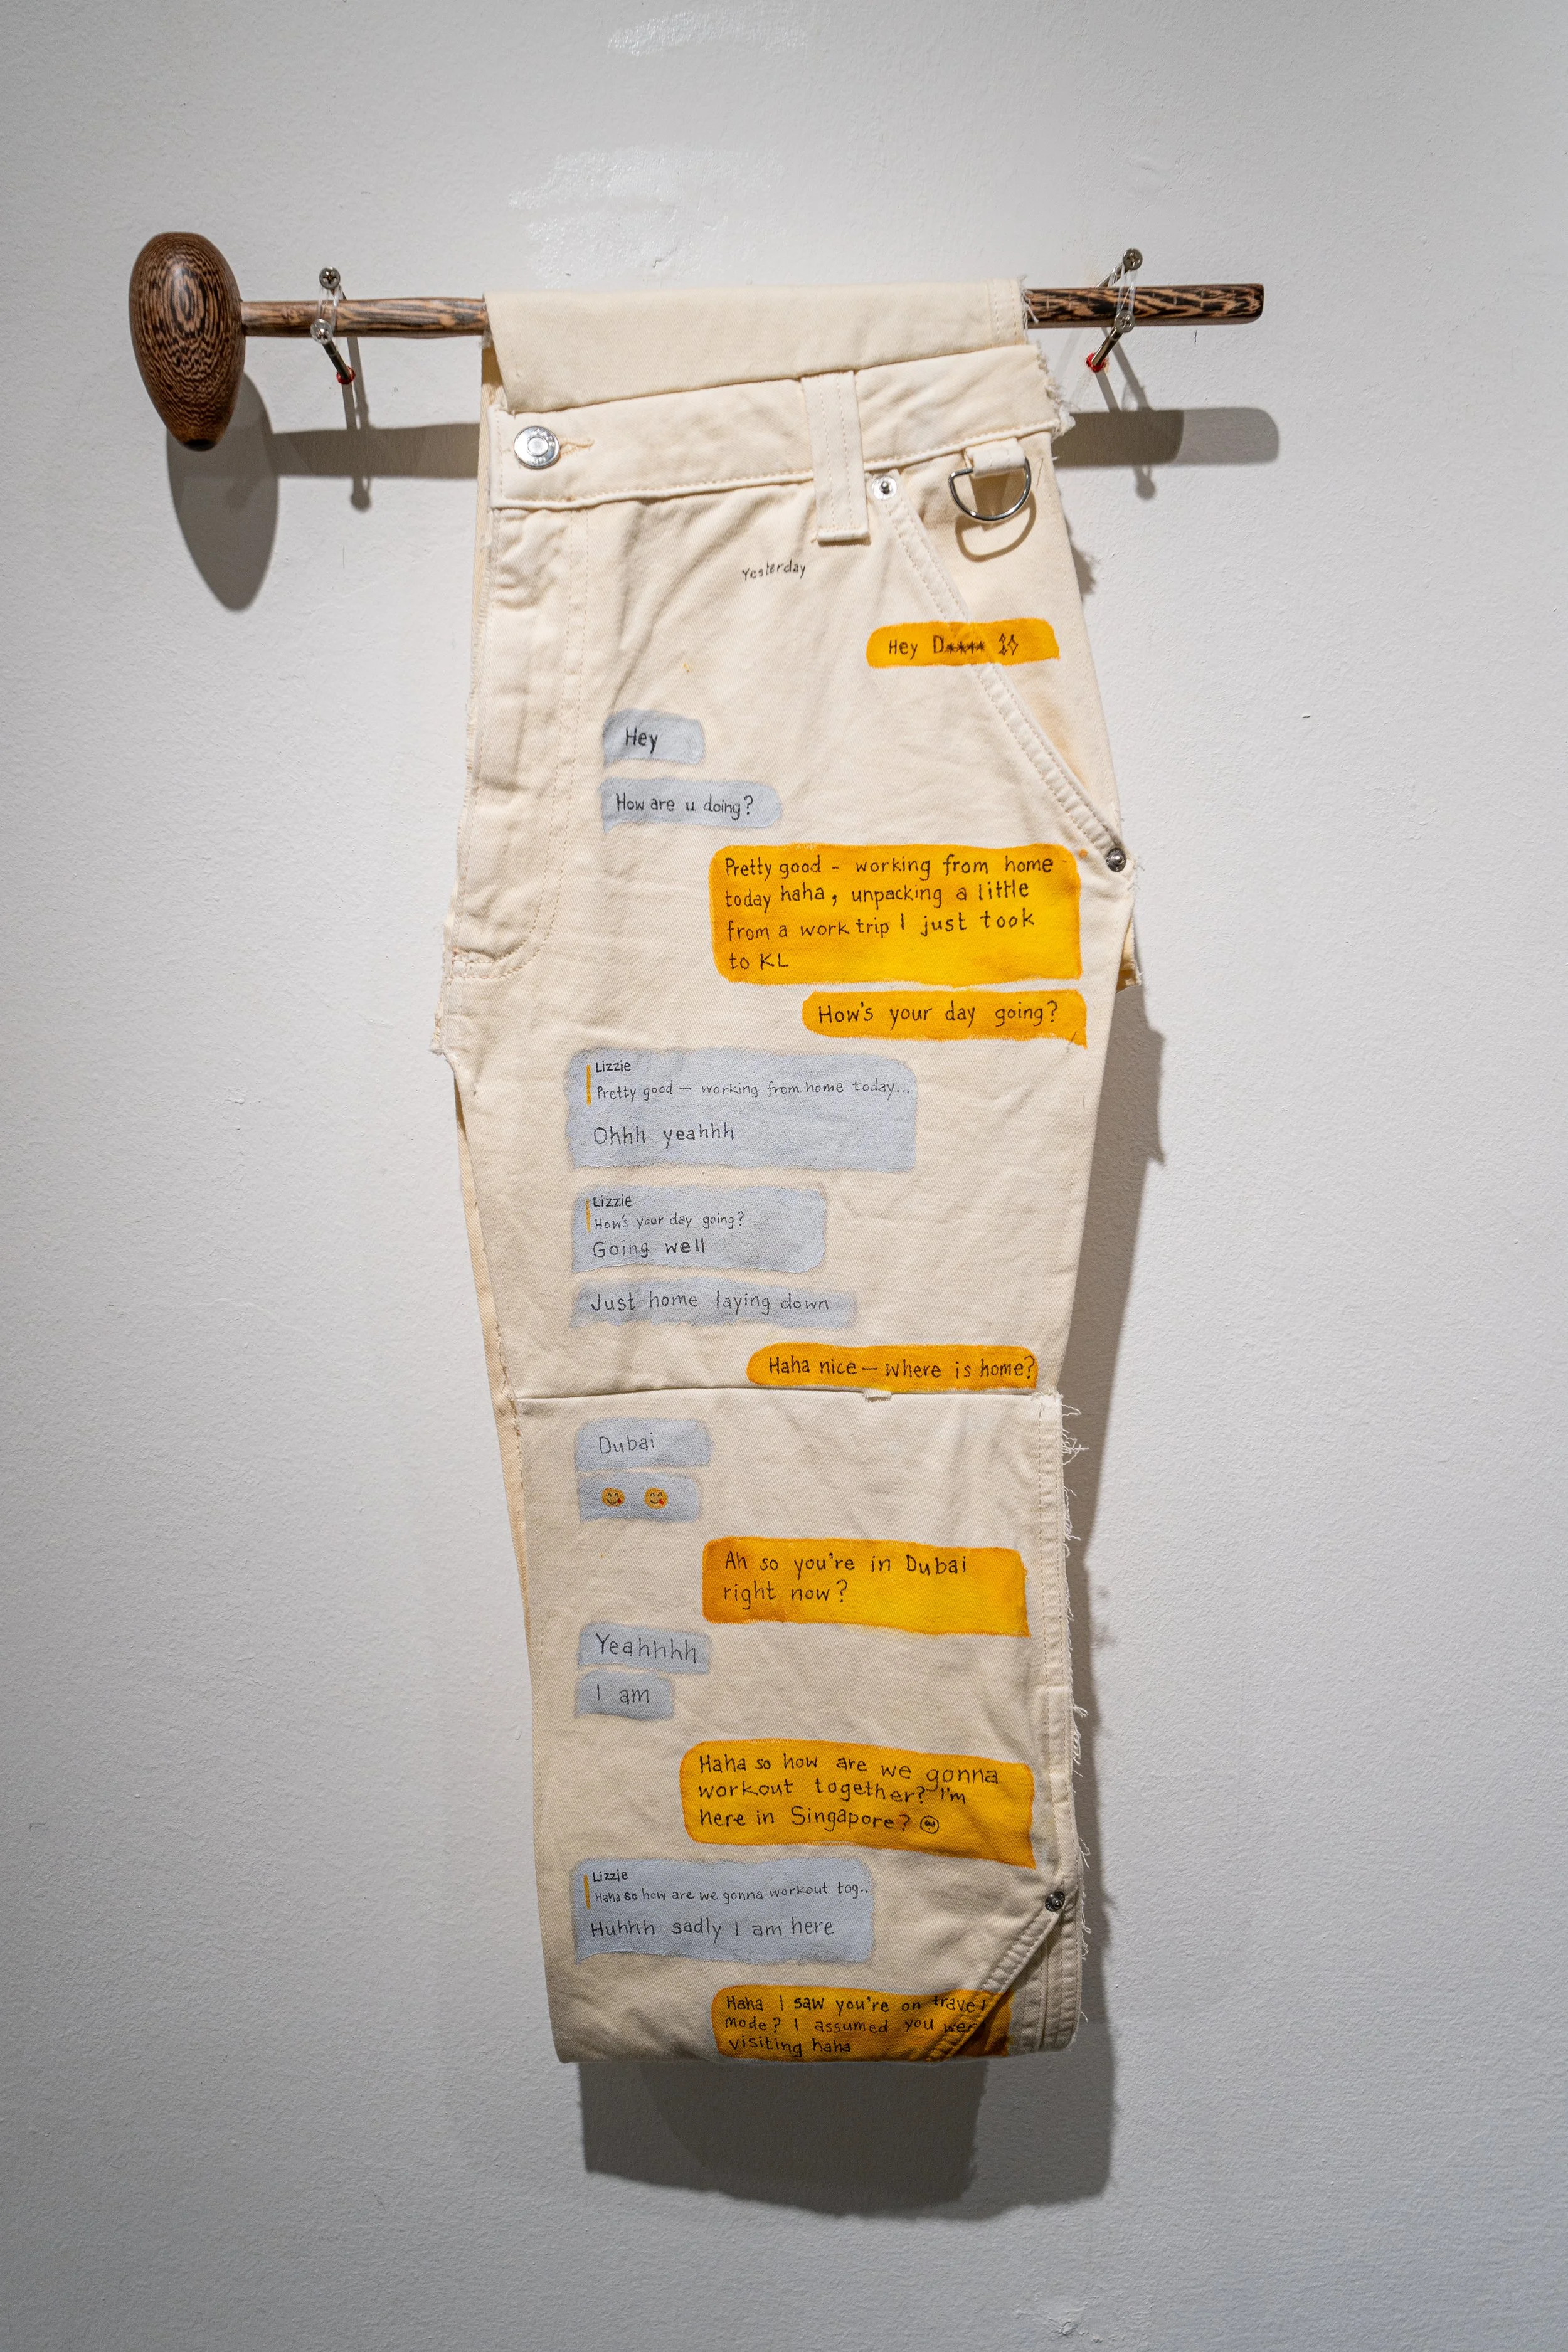 Yesterday
Hey D**** ✨
Hey
How are u doing?
Pretty good - working from home
today haha, unpacking a little
from a work trip I just took
to KL
How's your day going?
Lizzie
Pretty good — working from home today...
Ohhh yeahhh
Lizzie
How's your day going?
Going well
Just home laying down
Haha nice — where is home?
Dubai
😋 😋
Ah so you're in Dubai
right now?
Yeahhhh
I am
Haha so how are we gonna
workout together? I'm
here in Singapore? 🙂
Lizzie
Haha so how are we gonna workout tog..
Huhhh sadly I am here
Haha I saw you're on travel
mode? I assumed you were
visiting haha